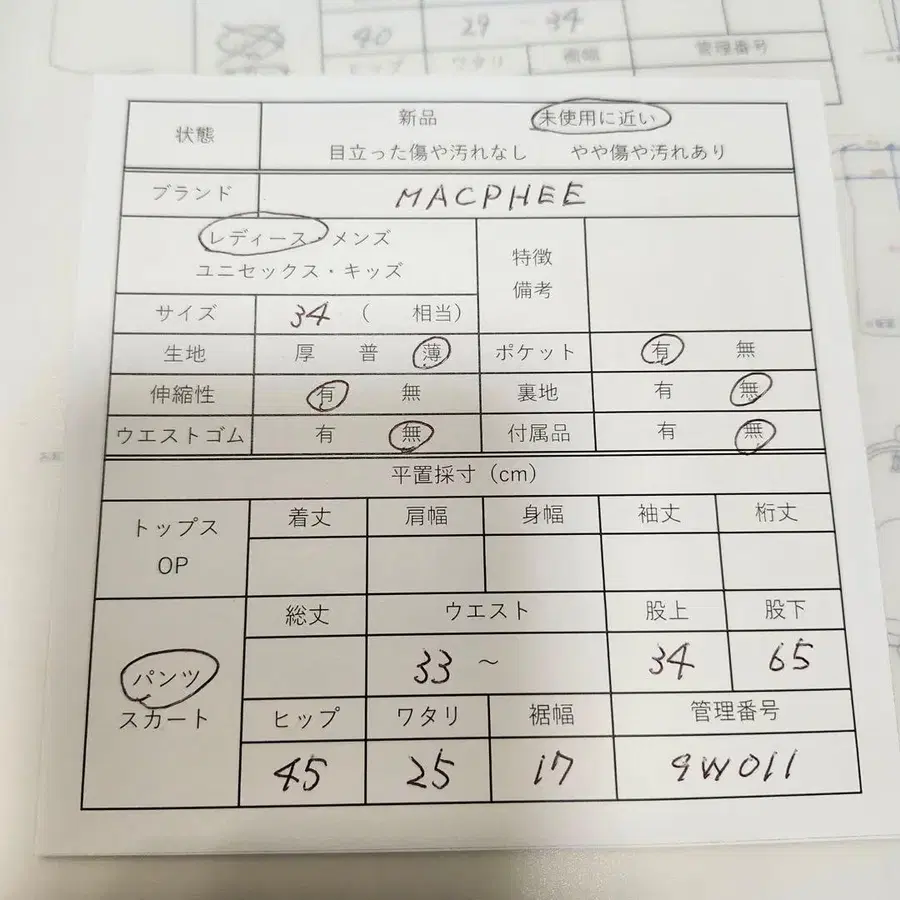 40 29 34
ヒップ ワタリ 裾幅 管理番号
状態 新品 未使用に近い
目立った傷や汚れなし やや傷や汚れあり
ブランド MACPHEE
レディース・メンズ
ユニセックス・キッズ
特徴
備考
サイズ 34 ( 相当)
生地 厚 普 薄 ポケット 有 無
伸縮性 有 無 裏地 有 無
ウエストゴム 有 無 付属品 有 無
平置採寸 (cm)
トップス
OP
着丈 肩幅 身幅 袖丈 裄丈
パンツ
スカート
総丈 ウエスト 股上 股下
33 ~ 34 65
ヒップ ワタリ 裾幅 管理番号
45 25 17 9W011